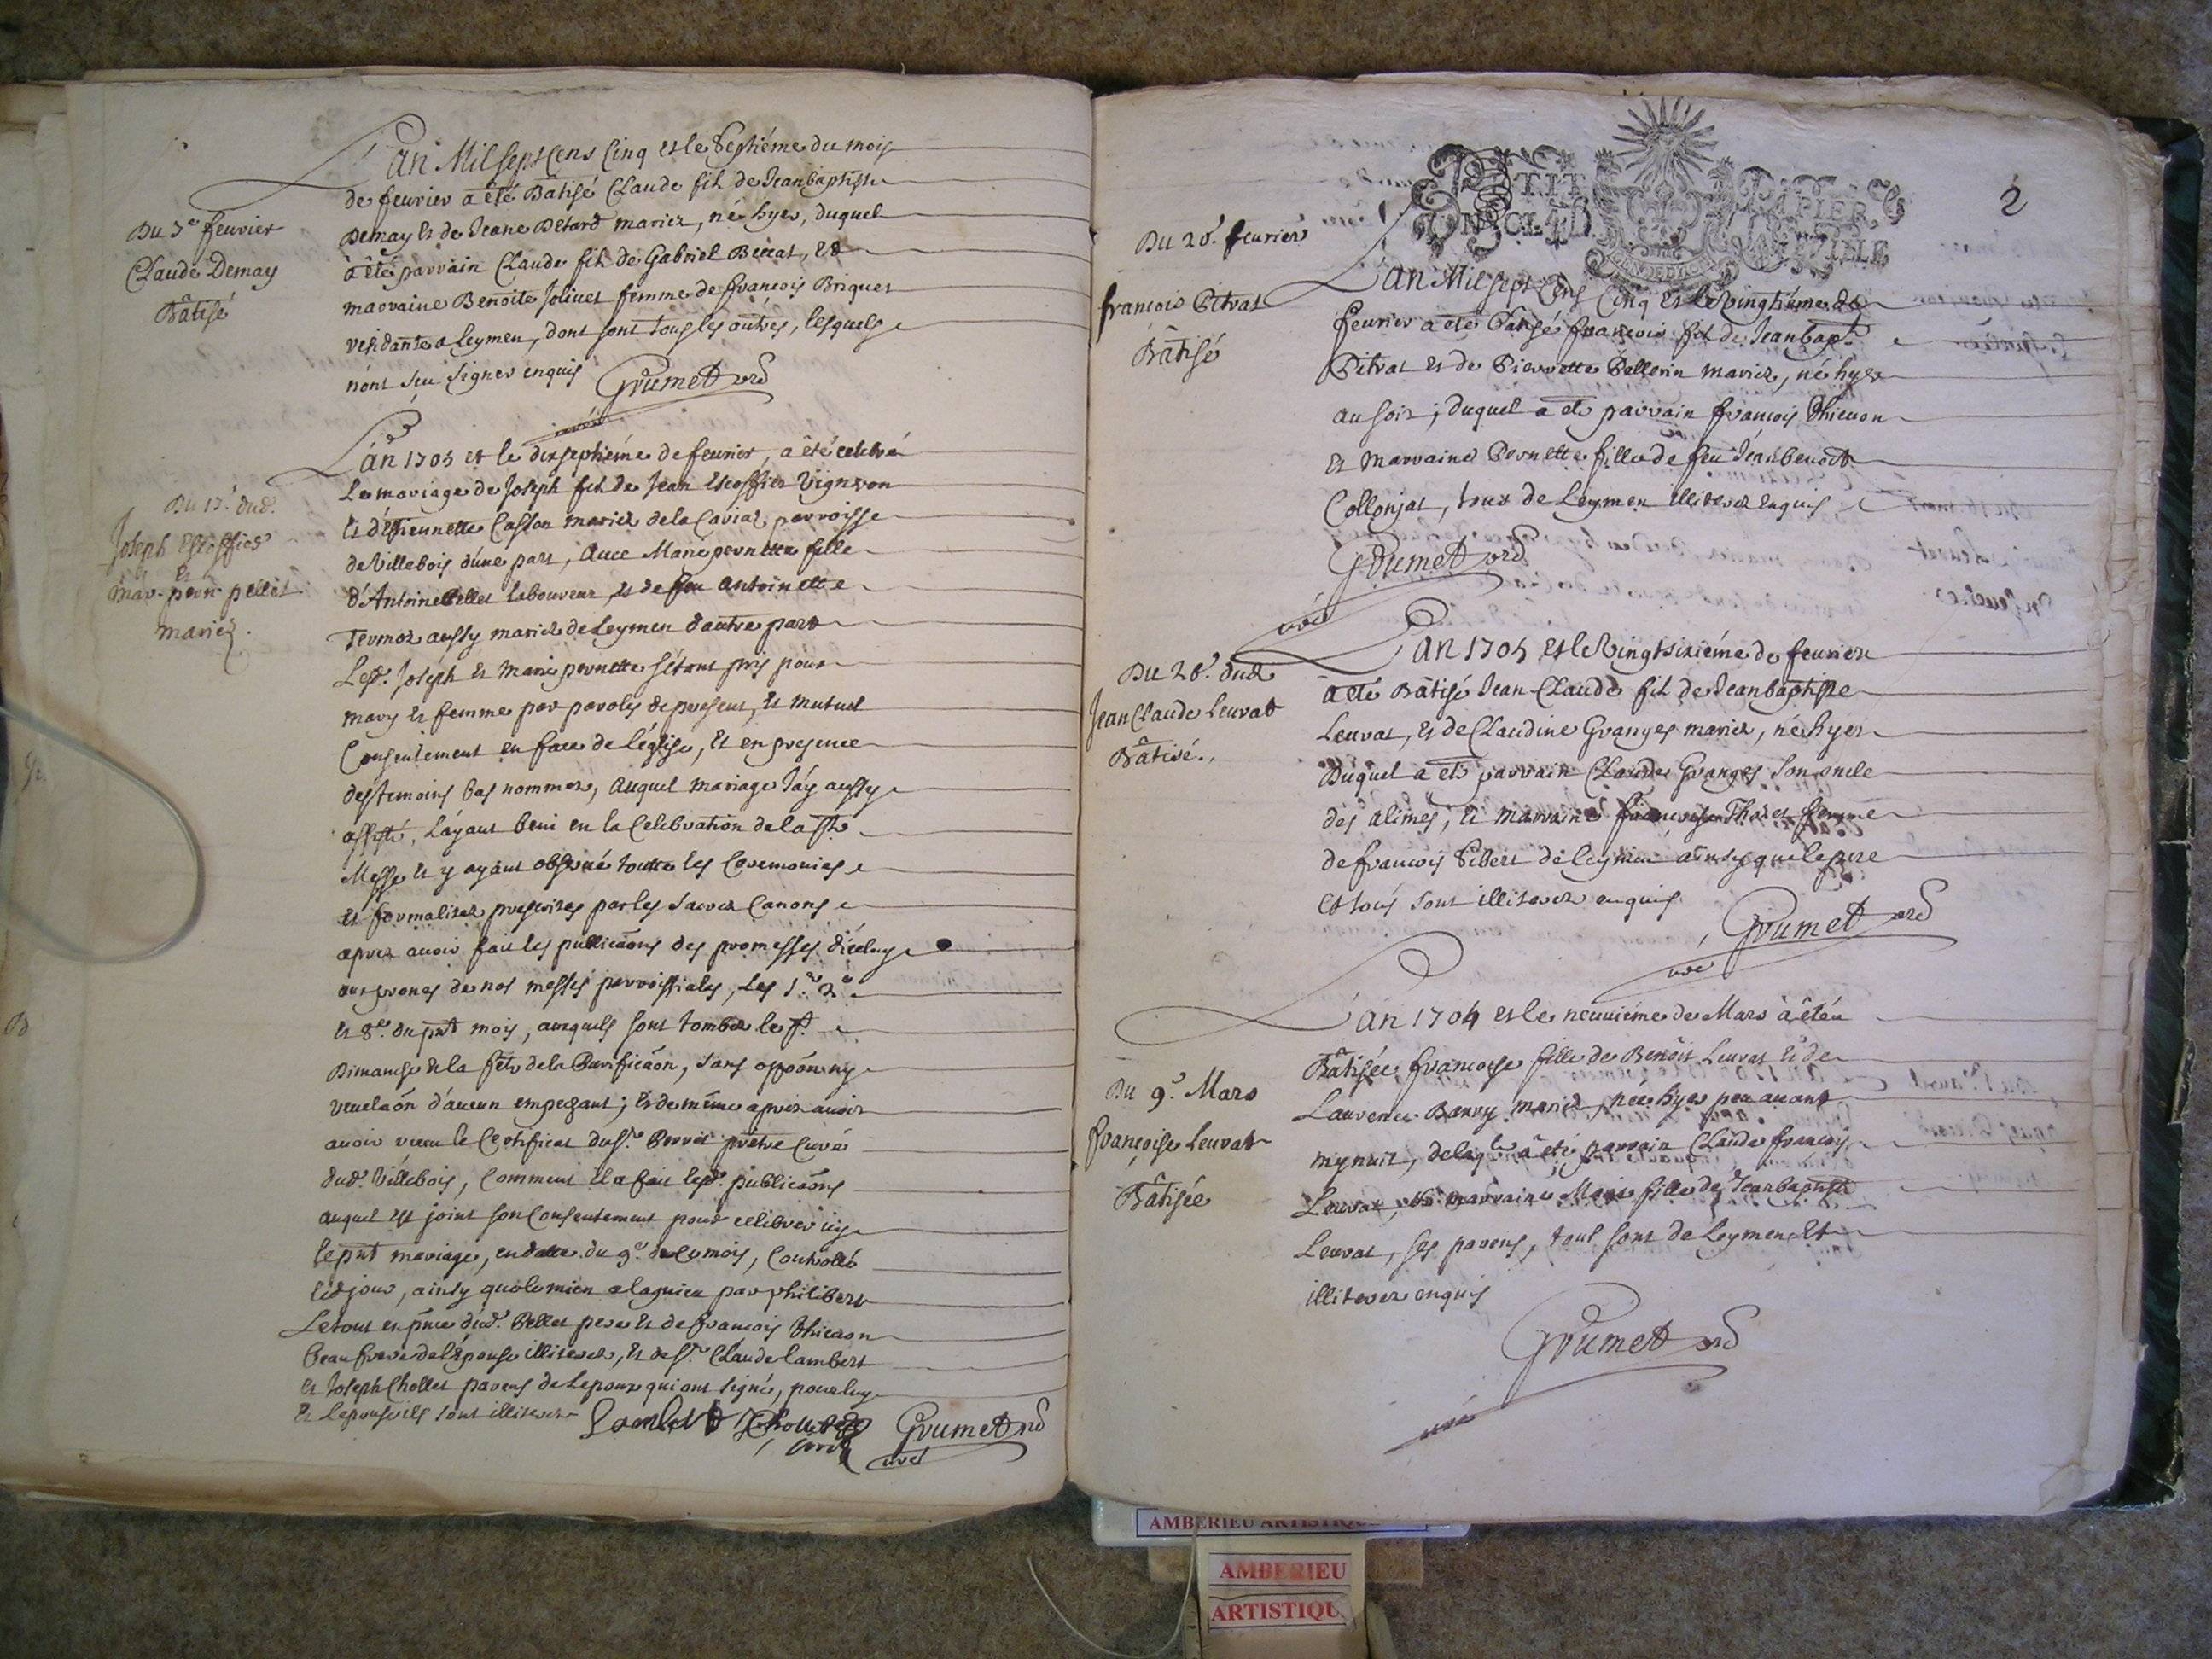 Du 7e feuvrier
Claude Demay
Bâtisé
L'an Mil sept Cens Cinq et le septiéme du mois
de feuvrier a été Batisé Claude fils de Jeanbaptiste
Demay et de Jeane Detard mariez, né hyer, duquel
à été parrain Claude fils de Gabriel et
marraine Benoite Jolivet femme de francois Briquet
residante a Leymen, dont sont tous les autres, lesquels
n'ont sçu signer enquis Grumet
curé
Du 17e dud.
Joseph Escoffier
et
mar. pern. pellet
mariez.
L'an 1705 et le dixseptiéme de feuvrier, a été celebré
Le mariage de Joseph fils de Jean Escoffier Vigneron
et d'Estiennette Caston mariez de la parroisse
de Villebois d'une part, Avec Marie pernette fille
d'Antoine Pellet laboureur, et de feu Antoinette
aussy mariez de Leymen d'autre part
Lesd. Joseph et Marie pernette s'étant pris pour
mary et femme par paroles de present, et mutuel
Consentement en face de l'église, et en presence
des temoins bas nommez, Auquel mariage J'ay aussy
assisté, L'ayant beni en la Celebration de la Ste
Messe et y ayant observé toutte les Ceremonies
et formalitez prescrites par les sacrez Canons
aprez avoir fait les publicaons des promesses d'iceluy
aux prones de nos messes parroissiales, Les 1er 2e
et 8e du pnt mois, auxquels sont tombez les
Dimanche et la fête de la Purificaon, sans oppoon ny
revelaon d'aucun empechant; et de même aprez avoir
avoir receu le Certificat du Sr. Perret prêtre Curé
dud. Villebois, Comment il a fait lesd. publicaons
auquel est joint son Consentement pour celebrer icy
le pnt mariage, en datte du 9e de ce mois, Controllé
led jour, ainsy que le mien a lagnieu par philibert
Le tout en pnce dud. Pellet pere et de francois Thievon
Beaufrere de l'épouse illiterez, et de Sr. Claude Lambert
et Joseph Chollet parens de Lepoux qui ont signé, pour luy
et Lepouse ils sont illiterez Lambert Grumet
curé
2
PETIT PAPIER
GENE DE DIJON
Du 20e. feuvrier
francois Pitrat
Bâtisé
L'an Mil sept Cens Cinq et le Vingtiéme de
feuvrier a été Batisé francois fils de Jeanbapte
Pitrat et de Pierrette Pellerin mariez, né hyer
au soir; duquel a été parrain francois Thievon
et Marraine Pernette fille de feu Jeanbenoit
Collonjat, tous de Leymen illiterez enquis
Grumet
curé
Du 26e. dud
Jean Claude Leuvat
Bâtisé.
L'an 1705 et le Vingtsixiéme de feuvrier
a été Bâtisé Jean Claude fils de Jeanbaptiste
Leuvat, et de Claudine Granges mariez, né hyer
Duquel a été parrain Claude Granges son oncle
des alimes, et marraine francoise Thoret femme
de francois Sibert de Leymen ainsy que le pere
et tous sont illiterez enquis
Grumet
curé
Du 9e. Mars
francoise Leuvat
Bâtisée
L'an 1704 et le neuviéme de Mars à été
Bâtisée francoise fille de Benoit Leuvat et de
Laurence mariez, née hyer peu avant
mynuit, de laqle à été parrain Claude francois
Leuvat, et marraine Marie fille de Jeanbaptiste
Leuvat, ses parens, tout sont de Leymen et
illiterez enquis
Grumet
curé
AMBERIEU ARTISTIQU
AMBERIEU
ARTISTIQU